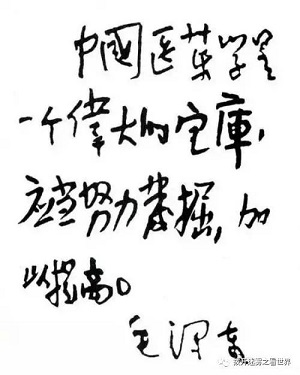 中國医药学是
一个偉大的宝庫，
应当努力發掘，加
以提高。
毛泽东
孩开迷雾之看世界